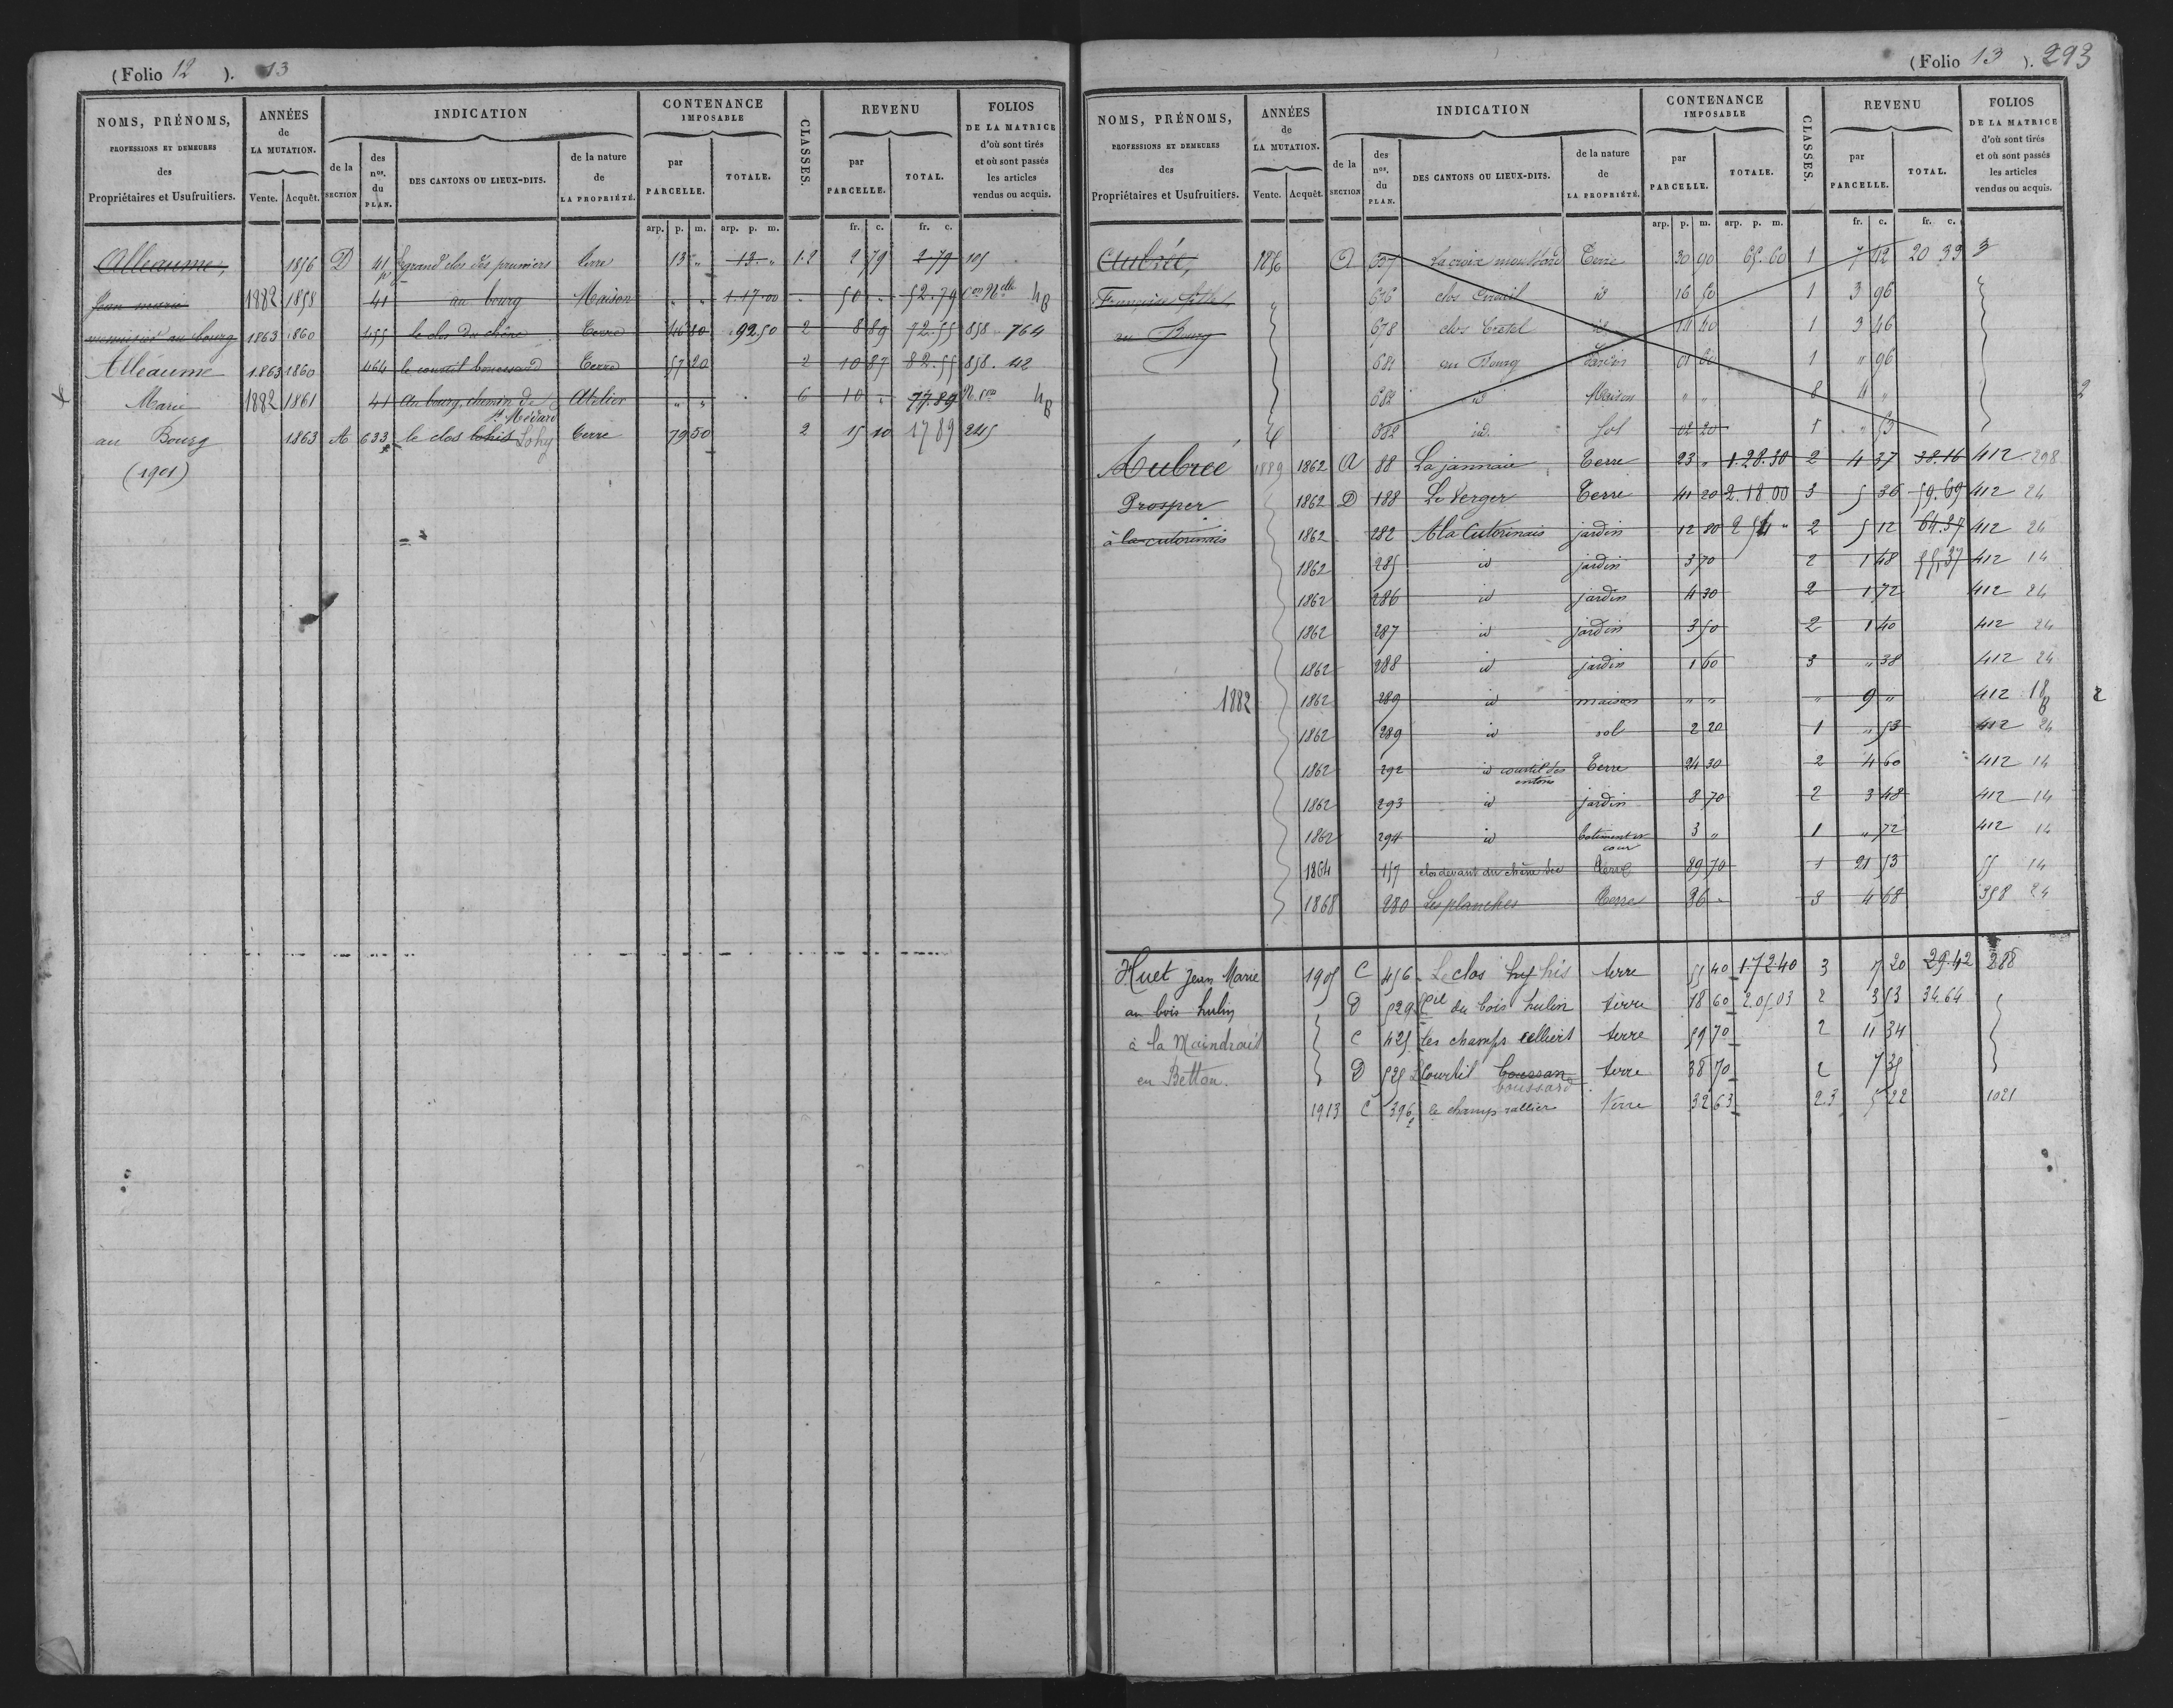 (Folio 12 ). 13
NOMS, PRÉNOMS, PROFESSIONS ET DEMEURES des Propriétaires et Usufruitiers.
ANNÉES de LA MUTATION. Vente. Acquêt.
INDICATION de la SECTION des nos. du PLAN. DES CANTONS OU LIEUX-DITS. de la nature de LA PROPRIÉTÉ.
CONTENANCE IMPOSABLE par PARCELLE. TOTALE.
CLASSES.
REVENU par PARCELLE. TOTAL.
FOLIOS DE LA MATRICE d'où sont tirés et où sont passés les articles vendus ou acquis.
arp. p. m. arp. p. m. fr. c. fr. c.
Alleaume, 1856 D 41 p. grand clos des pruniers terre 13 " 13. " 1.2 2 79 2.79 105
Jean marie 1882 1858 41 au bourg Maison " " 1.17.00 " 50 " 52.79 con Nlle 48
menuisier au bourg 1863 1860 455 le clos du chêne Terre 46 10 92 50 2 8 89 72.55 858 764
Alléaume 1863 1860 464 le courtil boucssard Terre 57 20 2 10 87 82.55 858. 42
Marie 1882 1861 41 Au bourg, chemin de St Médard Atelier " " 6 10 " 77.89 N. con 48
au Bourg 1863 A 633 le clos lohis Lohy terre 79 50 2 15 10 17 89 245
(1901)
(Folio 13 ). 293
NOMS, PRÉNOMS, PROFESSIONS ET DEMEURES des Propriétaires et Usufruitiers.
ANNÉES de LA MUTATION. Vente. Acquêt.
INDICATION de la SECTION des nos. du PLAN. DES CANTONS OU LIEUX-DITS. de la nature de LA PROPRIÉTÉ.
CONTENANCE IMPOSABLE par PARCELLE. TOTALE.
CLASSES.
REVENU par PARCELLE. TOTAL.
FOLIOS DE LA MATRICE d'où sont tirés et où sont passés les articles vendus ou acquis.
arp. p. m. arp. p. m. fr. c. fr. c.
Aubrée, 1856 A 657 La croix montbard Terre 30 90 65.60 1 7 12 20 33 3
676 clos id 16 50 1 3 96
au Bourg 678 clos Cretel id 14 40 1 3 46
681 au Bourg Jardin 01 60 1 " 96
682 id Maison " " 8 4 "
682 id. Sol 02 20 1 " 53
Aubreé 1889 1862 A 88 La jannaie Terre 23 " 1.28.30 2 4 37 38.16 412 298
Prosper 1862 D 188 Le Verger Terre 41 20 2.18 00 3 5 36 59.69 412 24
à la cutorinais 1862 282 A la Cutorinais jardin 12 80 2 54 " 2 5 12 64.37 412 24
1862 285 id jardin 3 70 2 1 48 55,37 412 14
1862 286 id jardin 4 30 2 1 72 412 24
1862 287 id jardin 3 50 2 1 40 412 24
1862 288 id jardin 1 60 3 " 38 412 24
1882 1862 289 id maison " " " 9 " 412 18
1862 289 id sol 2 20 1 " 53 412 24
1862 292 id courtil des entons Terre 24 30 2 4 60 412 14
1862 293 id jardin 8 70 2 3 48 412 14
1862 294 id batiment et cour 3 " 1 " 72 412 14
1864 157 clos devant du chêne sec Terre 89 70 1 21 53 55 14
1868 280 Les planches Terre 36 " 3 4 68 358 24
Huet Jean Marie 1905 C 456 Le clos hy his terre 55 40 1.72.40 3 7 20 29.42 288
au bois hulin D 529 Pce du bois hulin terre 18 60 2.05.03 2 3 53 34.64
à la Maindrais C 425 les champs ralliers terre 59 70 2 11 34
en Betton. D 525 Courtil boussan boussard terre 38 70 2 7 35
1913 C 396 le champ rallier terre 32 63 2.3 5 22 1021